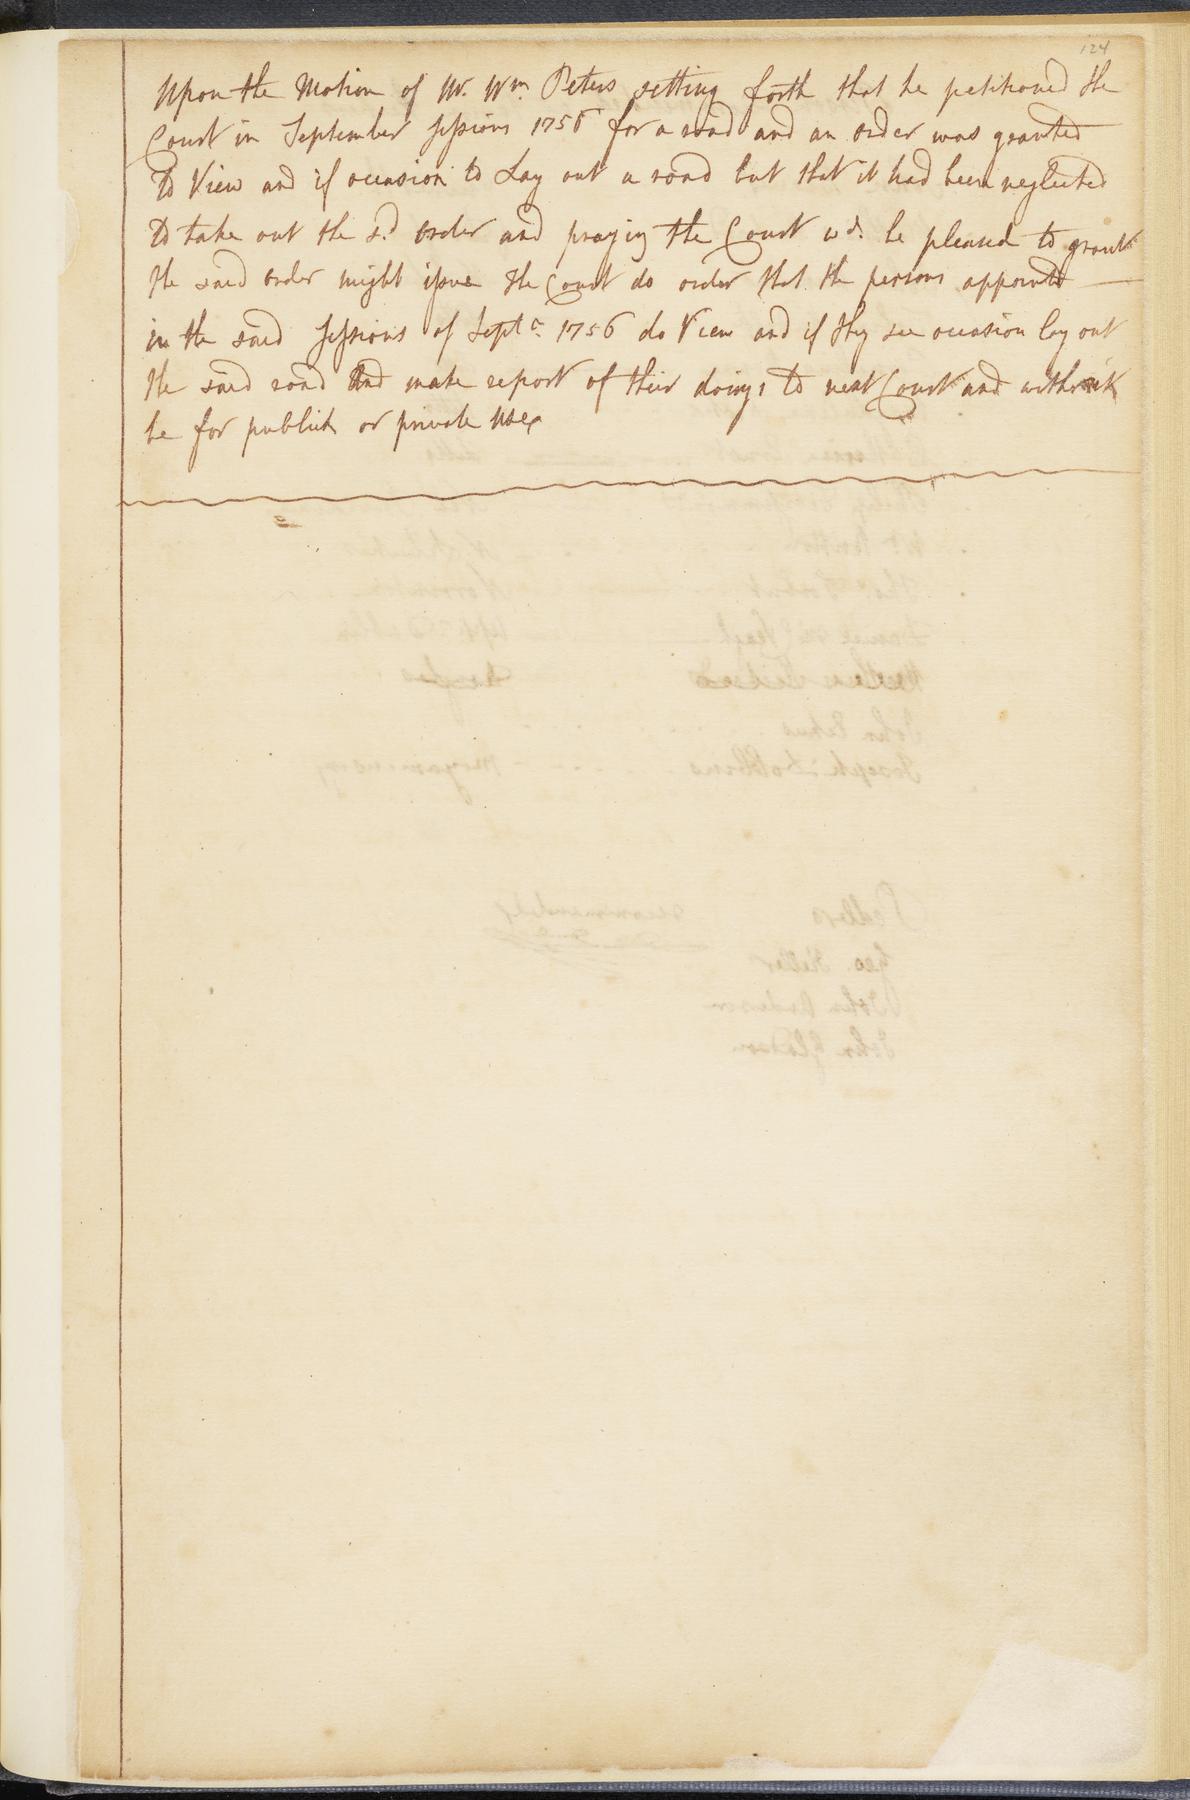 124
Upon the Motion of Mr. Wm. Peters setting forth that he petitioned the
Court in September sessions 1756 for a road and an order was granted
to View and if occasion to Lay out a road but that it had been neglected
to take out the sd. order and praying the Court wd. be pleased to grant
the said order might issue the Court do order that the persons appointed
in the said sessions of Septr. 1756 do View and if they see occasion lay out
the said road And make report of their doings to next Court and
be for publick or private use